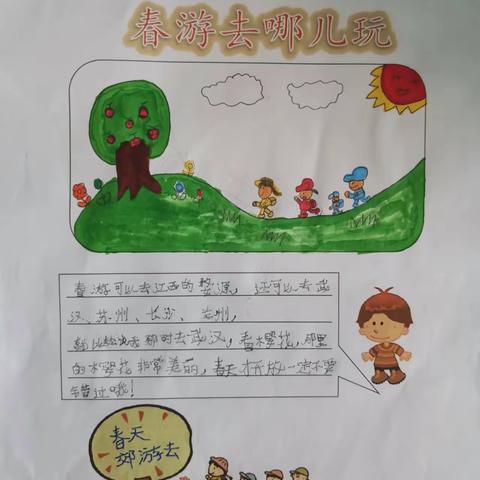 春游去哪儿玩
春游可以去江西的婺源，还可以去武
汉、苏州、长沙、兰州，
就比如你那时去武汉，看樱花，那里
的樱花非常美丽，春天开放一定不要
错过哦！
春天
郊游去